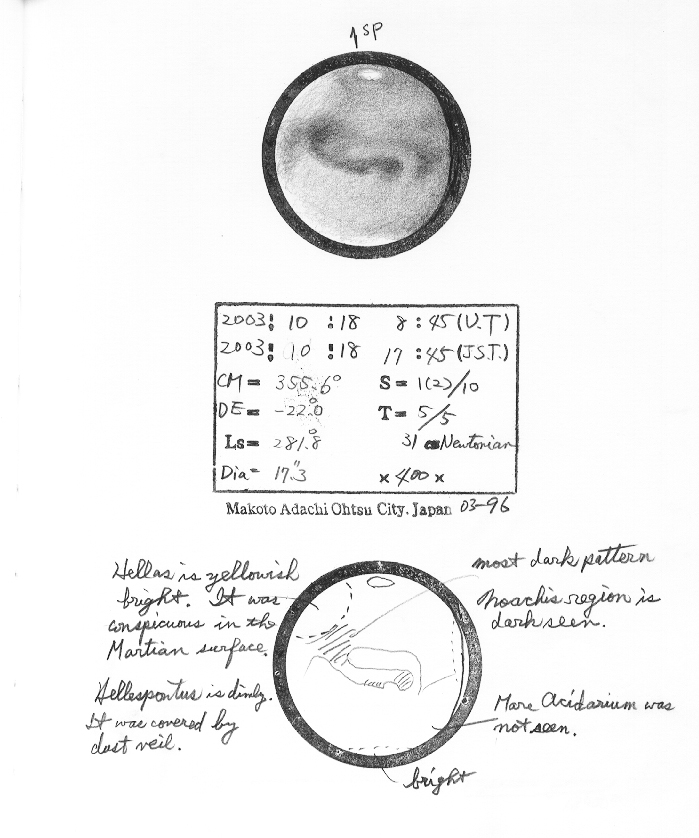 ↑SP
2003: 10 :18 8:45(U.T)
2003: 10 :18 17:45(J.S.T.)
CM= 355.6° S= 1(2)/10
DE= -22.°0 T= 5/5
Ls= 281.°8 31 cm Newtonian
Dia= 17."3 × 400 ×
Makoto Adachi Ohtsu City, Japan 03-96
Hellas is yellowish
bright. It was
conspicuous in the
Martian surface.
Hellespontus is dimly.
It was covered by
dust veil.
most dark pattern
Noachis region is
dark seen.
Mare Acidarium was
not seen.
bright